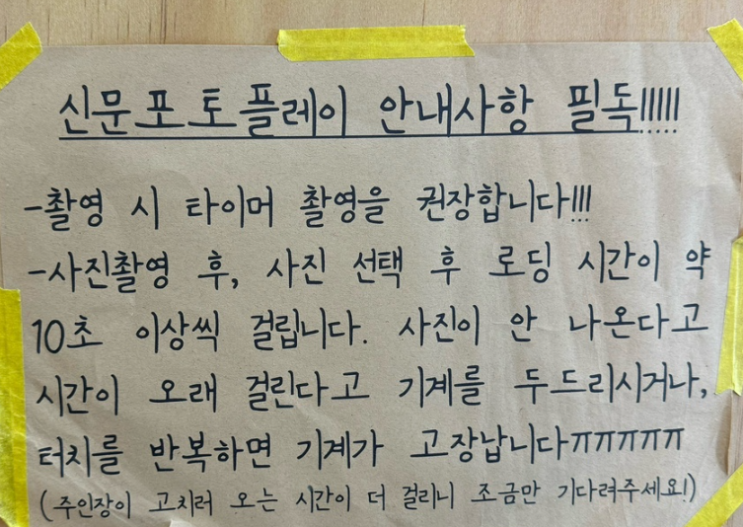 신문포토플레이 안내사항 필독!!!!!
-촬영 시 타이머 촬영을 권장합니다!!!
-사진촬영 후, 사진 선택 후 로딩 시간이 약
10초 이상씩 걸립니다. 사진이 안 나온다고
시간이 오래 걸린다고 기계를 두드리시거나,
터치를 반복하면 기계가 고장납니다ㅠㅠㅠㅠㅠ
(주인장이 고치러 오는 시간이 더 걸리니 조금만 기다려주세요!)